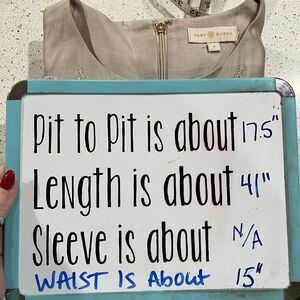 TORY BURCH
Pit to Pit is about 17.5"
Length is about 41"
Sleeve is about N/A
WAIST IS About 15"